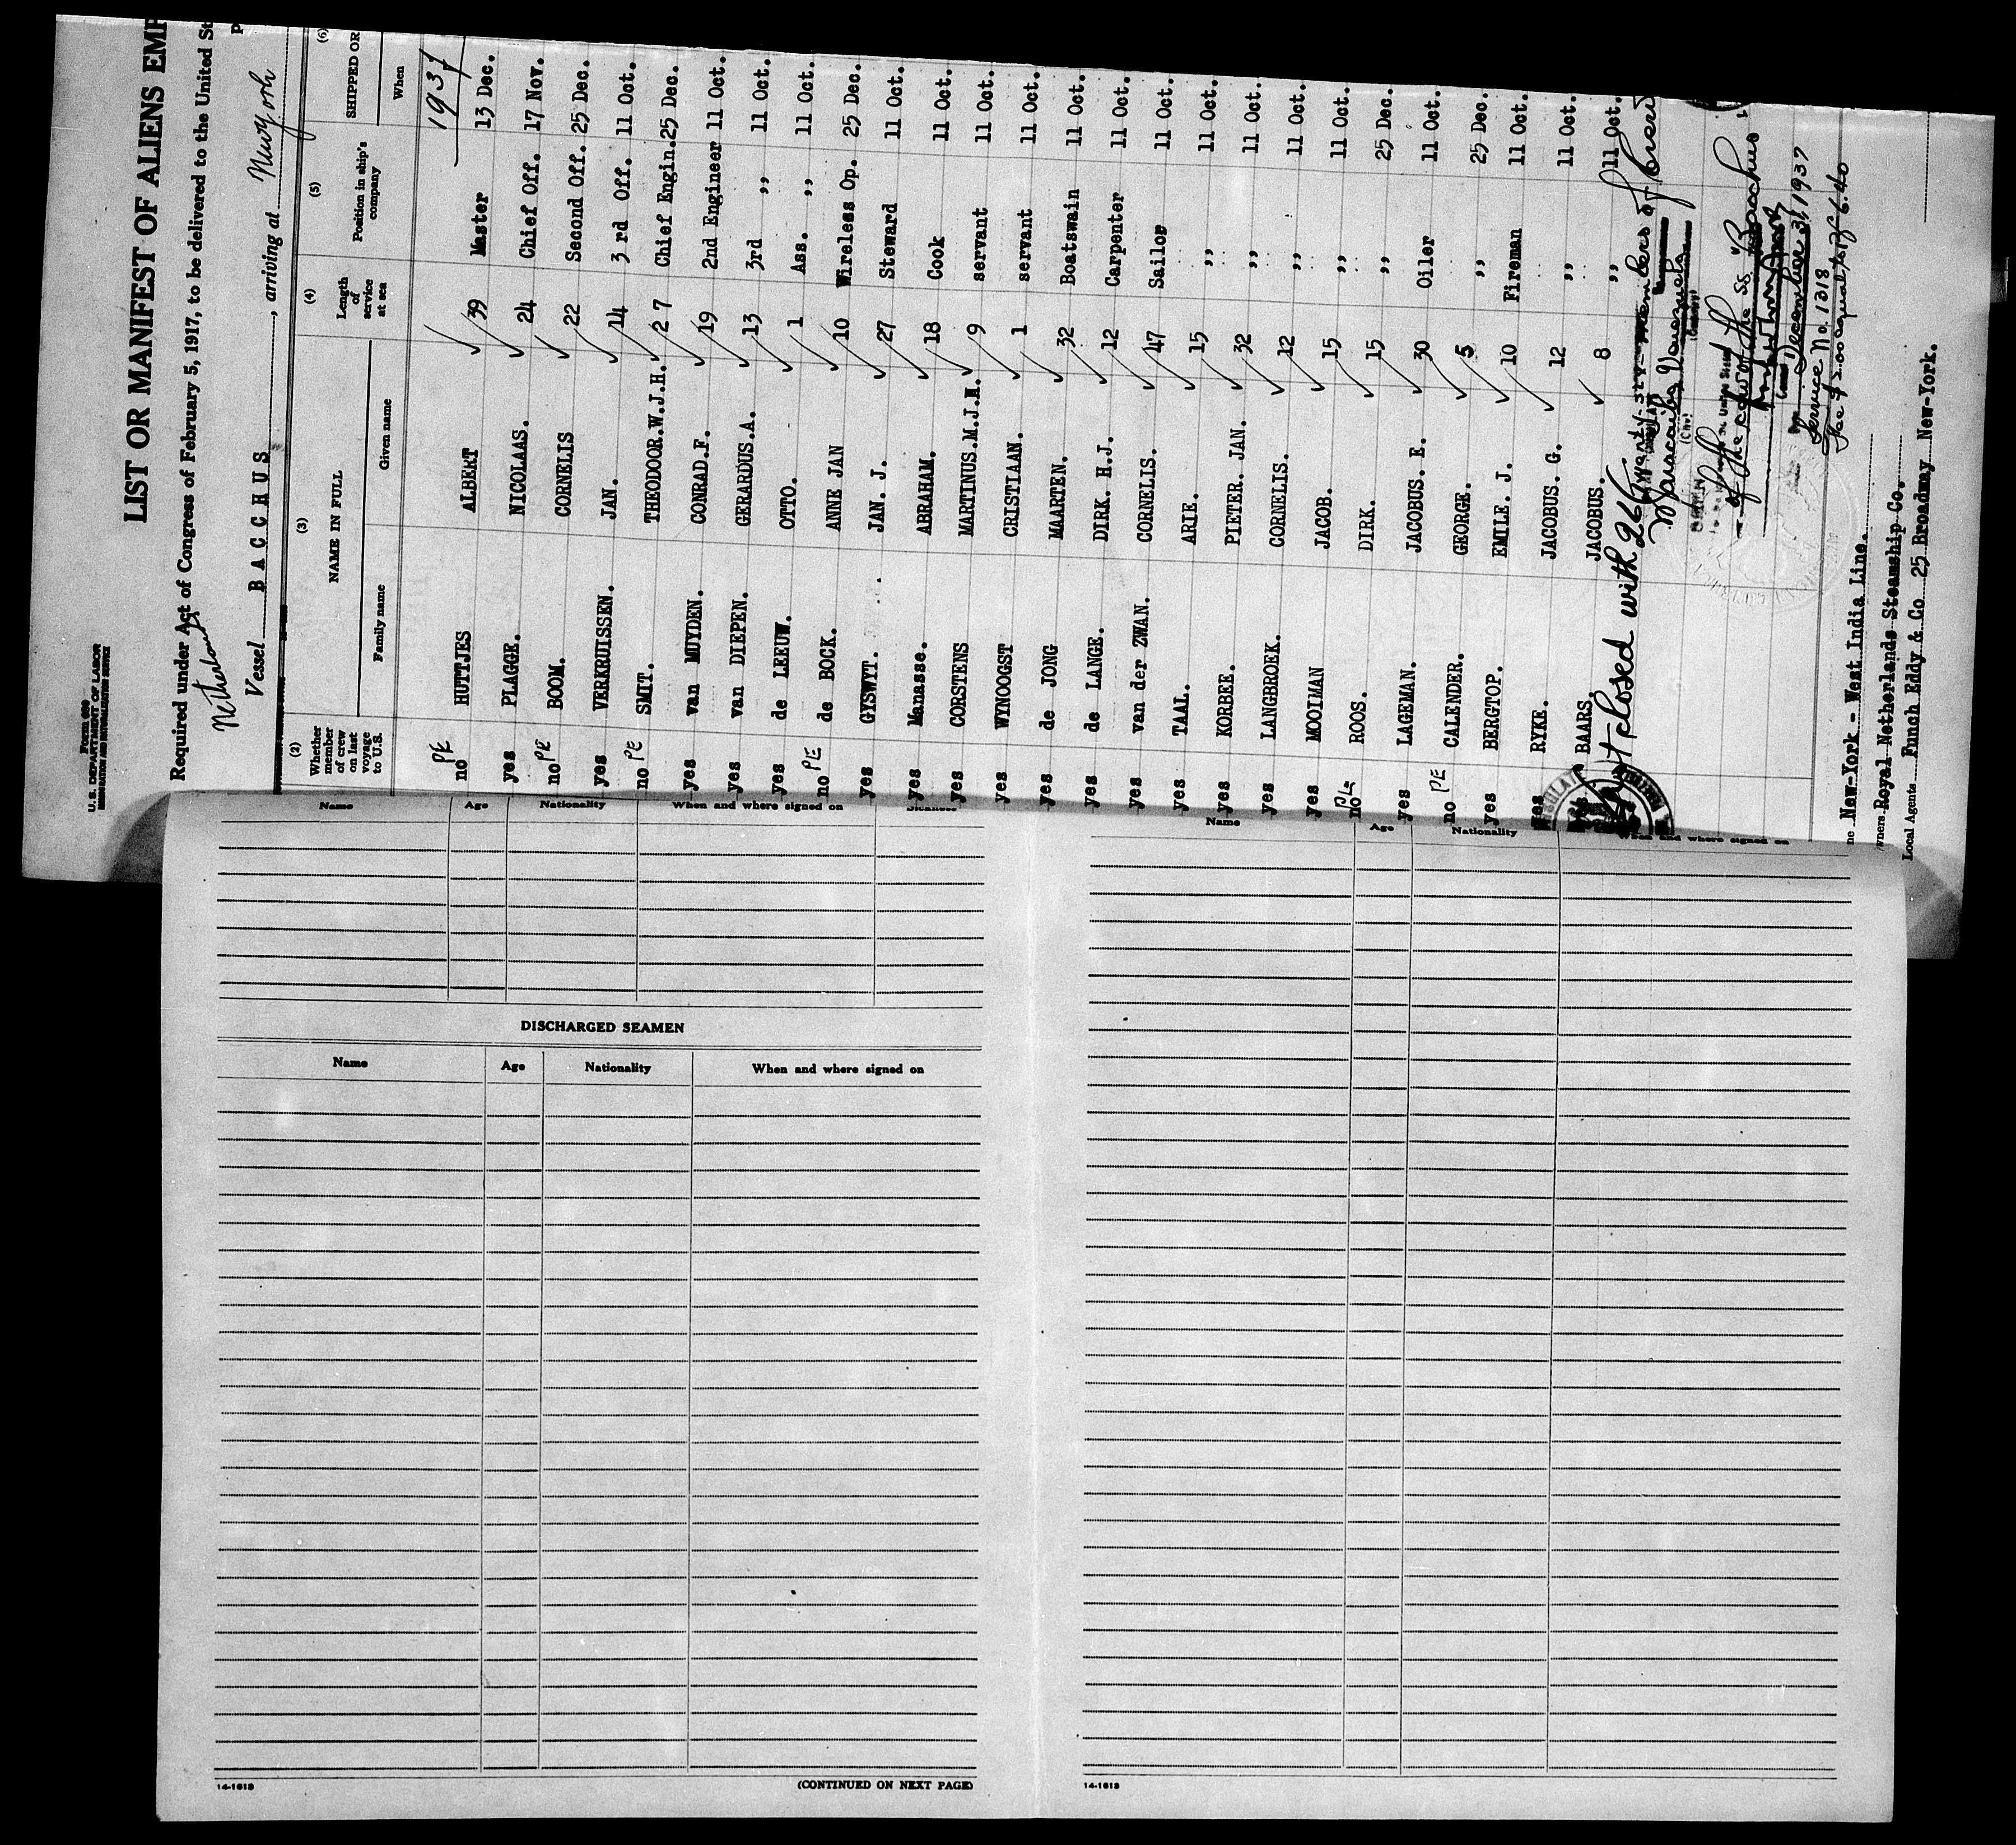 Form 680
U. S. DEPARTMENT OF LABOR
IMMIGRATION AND NATURALIZATION SERVICE
LIST OR MANIFEST OF ALIENS EMP
Required under Act of Congress of February 5, 1917, to be delivered to the United St
Netherlands
Vessel BACCHUS, arriving at New York
(2) (3) (4) (5) (6)
Whether member of crew on last voyage to U.S. NAME IN FULL Length of service at sea Position in ship's company SHIPPED OR
Family name Given name When
1937
PE
no HUTTJES ALBERT 39 Master 13 Dec.
yes PLAGGE. NICOLAAS. 24 Chief Off. 17 Nov.
no PE BOOM. CORNELIS 22 Second Off. 25 Dec.
yes VERKRUISSEN. JAN. 14 3 rd Off. 11 Oct.
no PE SMIT. THEODOOR.W.J.H. 27 Chief Engin. 25 Dec.
yes van MUYDEN. CONRAD.F. 19 2nd Engineer 11 Oct.
yes van DIEPEN. GERARDUS.A. 13 3rd ,, 11 Oct.
yes de LEEUW. OTTO. 1 Ass. ,, 11 Oct.
no PE de BOCK. ANNE JAN 10 Wireless Op. 25 Dec.
yes GYSWYT. JAN. J. 27 Steward 11 Oct.
yes Manasse. ABRAHAM. 18 Cook 11 Oct.
yes CORSTENS MARTINUS.M.J.M. 9 servant 11 Oct.
yes WYNOOGST CRISTIAAN. 1 servant 11 Oct.
yes de JONG MAARTEN. 32 Boatswain 11 Oct.
yes de LANGE. DIRK. H.J. 12 Carpenter 11 Oct.
yes van der ZWAN. CORNELIS. 47 Sailor 11 Oct.
yes TAAL. ARIE. 15 ,, 11 Oct.
yes KORBEE. PIETER. JAN. 32 ,, 11 Oct.
yes LANGBROEK. CORNELIS. 12 ,, 11 Oct.
yes MOOIMAN JACOB. 15 ,, 11 Oct.
no PE ROOS. DIRK. 15 ,, 25 Dec.
yes LAGEMAN. JACOBUS. E. 30 Oiler 11 Oct.
no PE CALENDER. GEORGE. 5 ,, 25 Dec.
yes BERGTOP. EMILE J. 10 Fireman 11 Oct.
yes RYKE. JACOBUS. G. 12 ,, 11 Oct.
BAARS JACOBUS. 8 ,, 11 Oct.
closed with 26 (Twenty-six) members of crew
Maracaibo, Venezuela
(City) (Country)
of the crew of the SS "Bacchus"
December 31, 1937
Service No. 1318
Fee $2.00 equal to Bs 6.40
New-York - West India Line.
wners Royal Netherlands Steamship Co.
Local Agents Funch Eddy & Co 25 Broadway New-York.
Name Age Nationality When and where signed on
DISCHARGED SEAMEN
Name Age Nationality When and where signed on
14-1613 (CONTINUED ON NEXT PAGE)
Name Age Nationality When and where signed on
14-1613